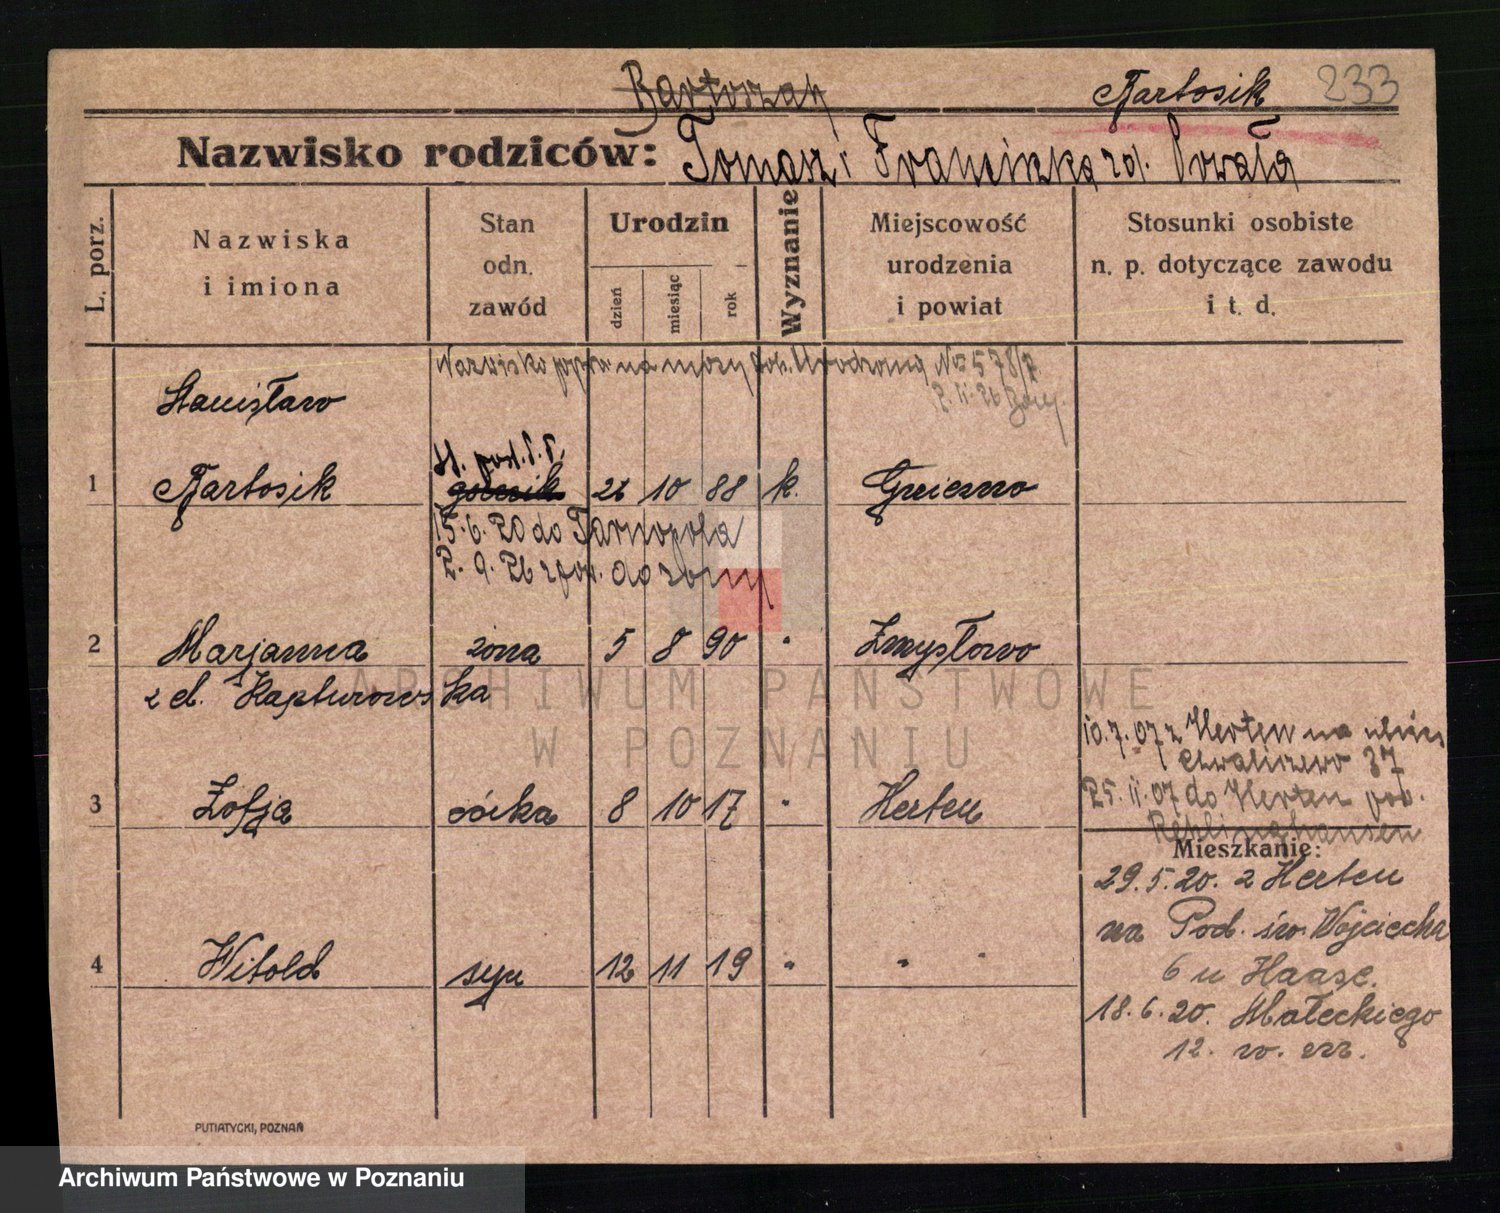 Bartoszak Bartosik 233
Nazwisko rodziców: Tomasz i Franciszka rd. Powała
L. porz.
Nazwiska i imiona
Stan odn. zawód
Urodzin
dzień
miesiąc
rok
Wyznanie
Miejscowość urodzenia i powiat
Stosunki osobiste n. p. dotyczące zawodu i t. d.
Nazwisko popr. na mocy Urodzenia No 578/
Stanisław
1 Bartosik górnik 10 88 k. Gniezno
15.6.20 do Tarnopola
2.9.26 do żony
2 Marjanna żona 5 8 90 " Zmysłowo
z d. Kapturowska
10.7.07 z Herten na ulicę
Chwaliszewo 37
3 Zofja córka 8 10 17 " Herten
25.11.07 do Herten pow.
Reklinghausen
Mieszkanie:
29.5.20. z Herten
na Pod. św. Wojciecha
6 u Haase.
4 Witold syn 12 11 19 " " "
18.6.20. Małeckiego
12.
PUTIATYCKI, POZNAŃ
ARCHIWUM PAŃSTWOWE
W POZNANIU
Archiwum Państwowe w Poznaniu